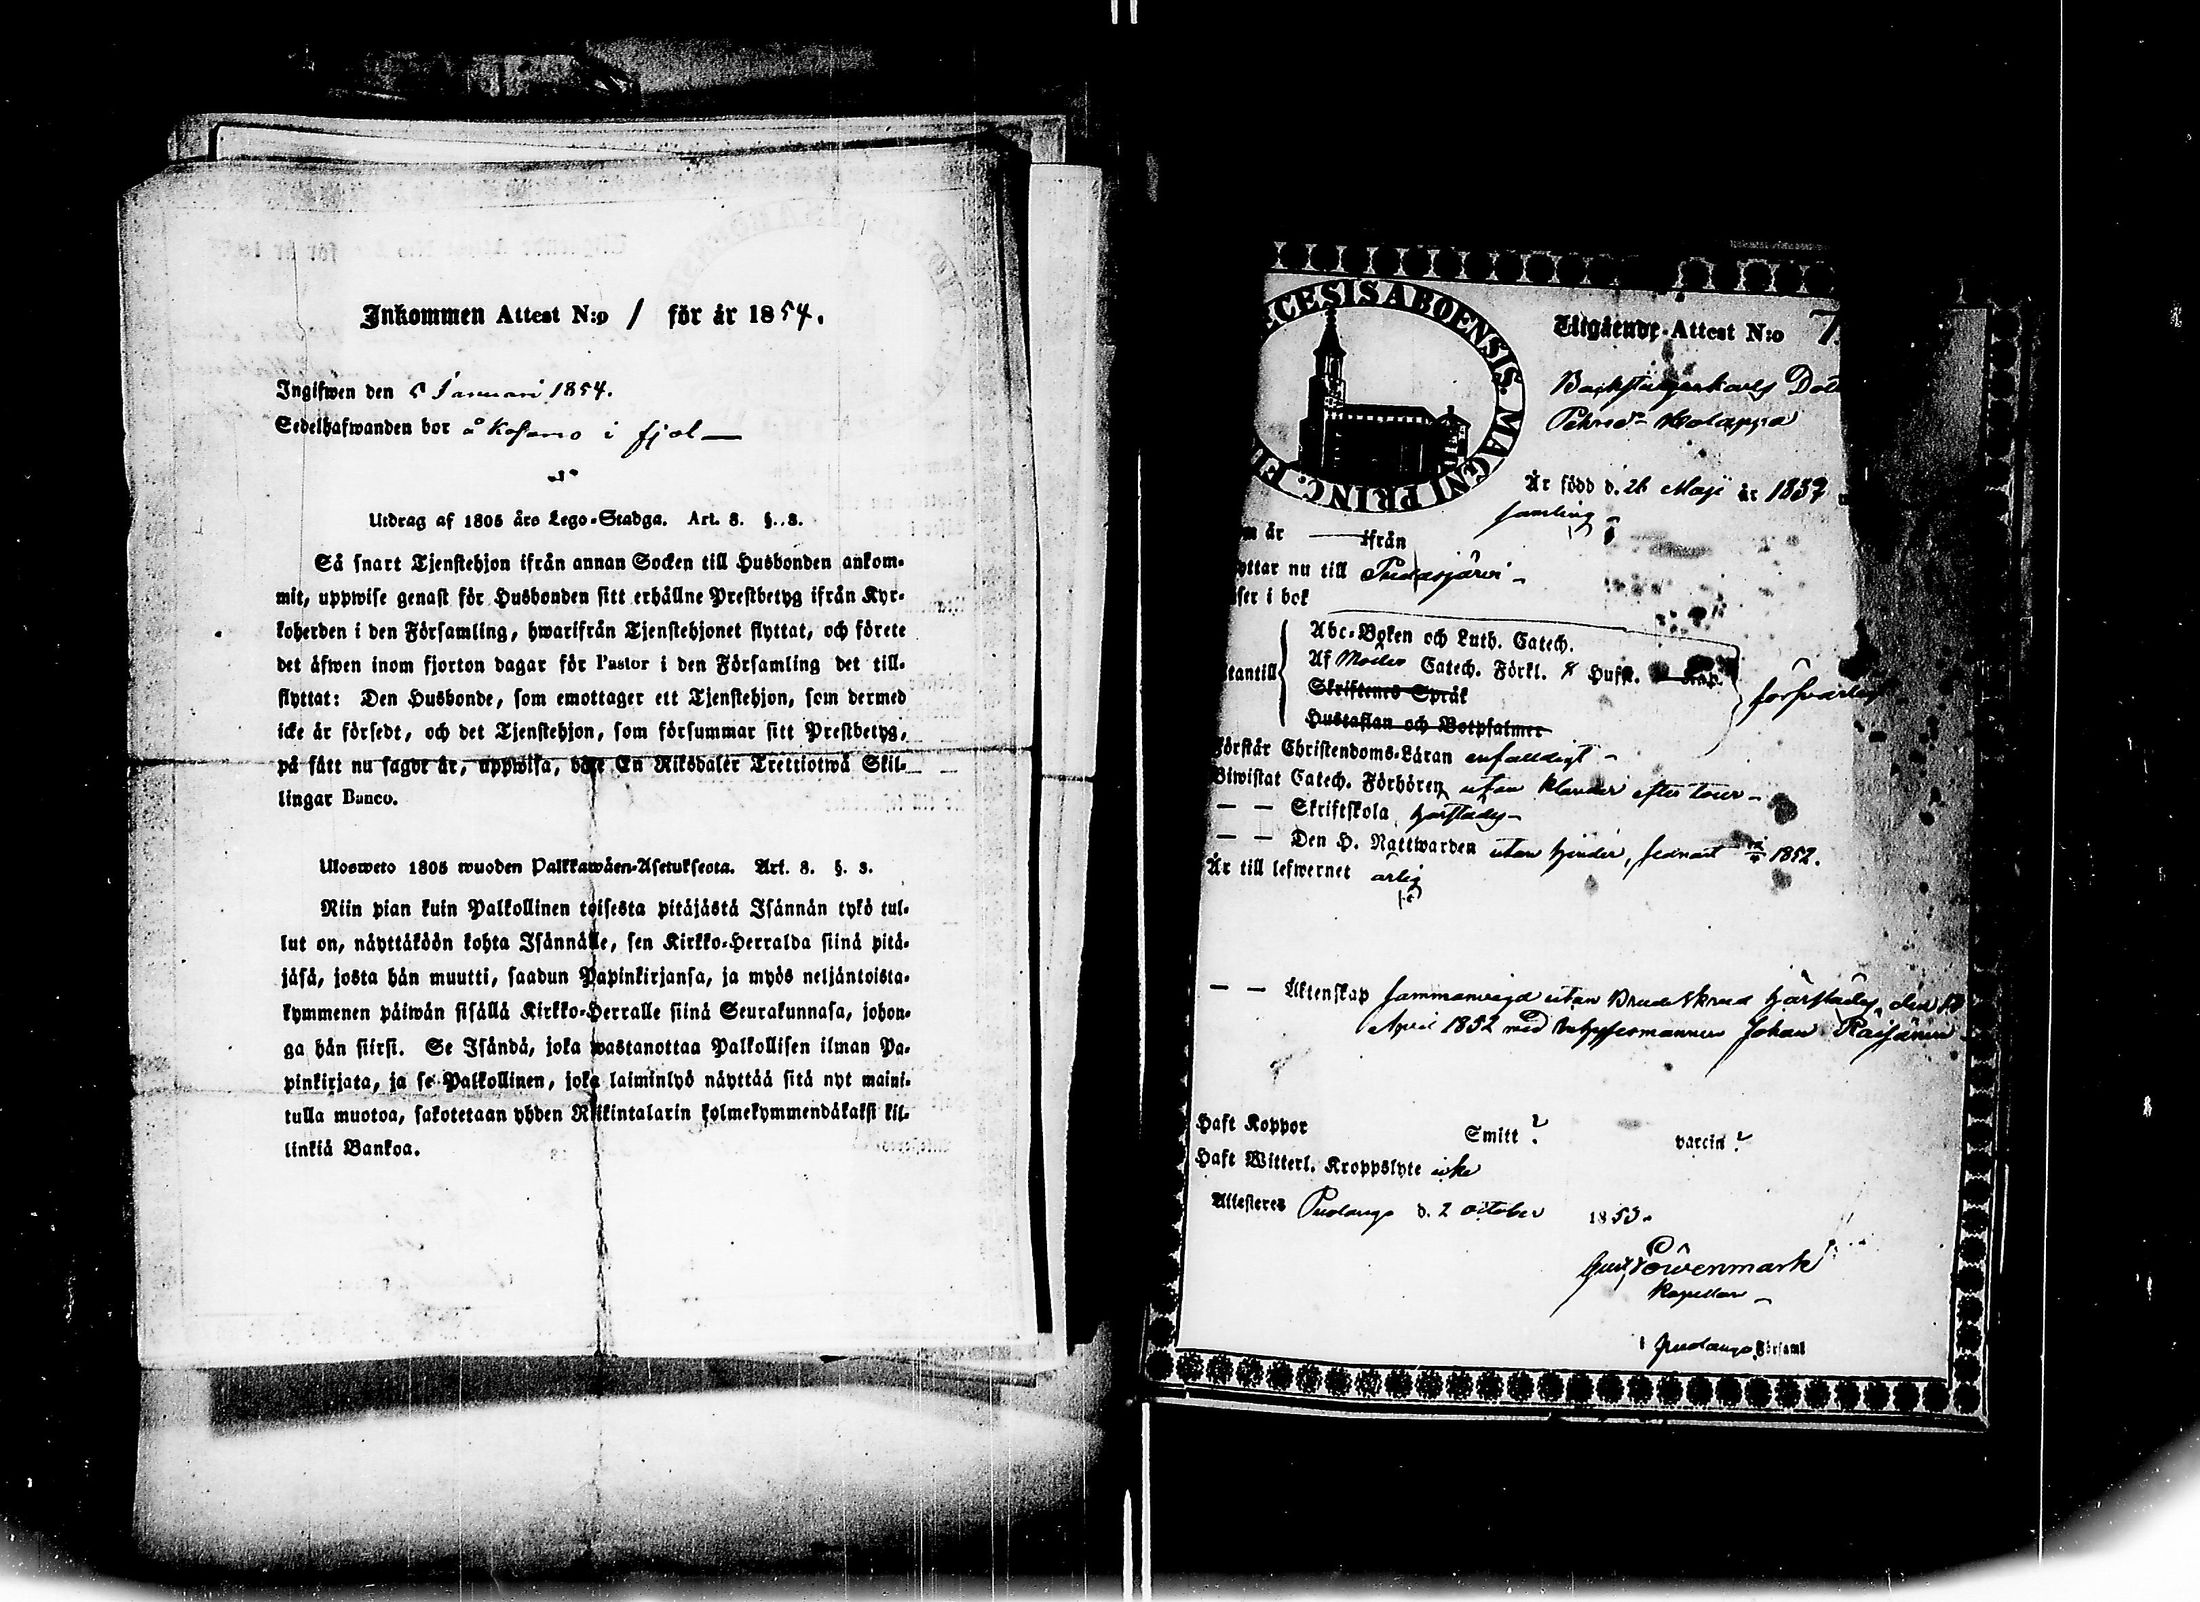 Inkommen Attest N:o 1 för år 1854.
Ingifwen den 5 Januari 1854.
Sedelhafwanden bor å Kosamo i fjol
Utdrag af 1805 års Lego-Stadga. Art. 8. §. 8.
Så snart Tjenstehjon ifrån annan Socken till Husbonden ankom-
mit, uppwise genast för Husbonden sitt erhållne Prestbetyg ifrån Kyr-
koherden i den Församling, hwarifrån Tjenstehjonet flyttat, och förete
det äfwen inom fjorton dagar för Pastor i den Församling det till-
flyttat: Den Husbonde, som emottager ett Tjenstehjon, som dermed
icke är försedt, och det Tjenstehjon, som försummar sitt Prestbetyg,
på sätt nu sagdt är, uppwisa, böte En Riksdaler Trettiotwå Skil-
lingar Banco.
Ulosweto 1805 wuoden Palkkawäen-Asetuksesta. Art. 8. §. 3.
Niin pian kuin Palkollinen toisesta pitäjästä Isännän tykö tul-
lut on, näyttäköön kohta Isännälle, sen Kirkko-Herralda siinä pitä-
jäsä, josta hän muutti, saadun Papinkirjansa, ja myös neljäntoista-
kymmenen päiwän sisällä Kirkko-Herralle siinä Seurakunnasa, johon-
ga hän siirsi. Se Isändä, joka wastanottaa Palkollisen ilman Pa-
pinkirjata, ja se Palkollinen, joka laiminlyö näyttää sitä nyt maini-
tulla muotoa, sakotetaan yhden Riikintalarin kolmekymmendäkaksi kil-
linkiä Bankoa.
CESIS ABOENSIS. MAGNI PRINC. FI
Utgående Attest N:o 7
Backstugukarls Dott
Pehrsdr Kolappa
Är född d. 26 Maji år 1837
samling
m är ifrån
yttar nu till Pudasjärvi
äser i bok
Abc-Boken och Luth. Catech.
tantill Af Catech. Förkl. & Husf.
Skriftenes Språk
Hustaflan och Botpsalmer
försvarlig
Förstår Christendoms-Läran enfaldigt
Biwistat Catech. Förhören utan klander efter tour
— — Skriftskola härstädes
— — Den H. Nattwarden utan hinder, sednast 1852.
Är till lefwernet ärlig
— — Äktenskap sammanvigd utan Brudskrud härstädes den
April 1852 med Johan Räisänen
Haft Koppor Smitt? vaccin?
Haft Witterl. Kroppslyte icke
Attesteres Pudango d. 2 October 1853.
Gust Löwenmark
Kapellan
i Pudango Församl